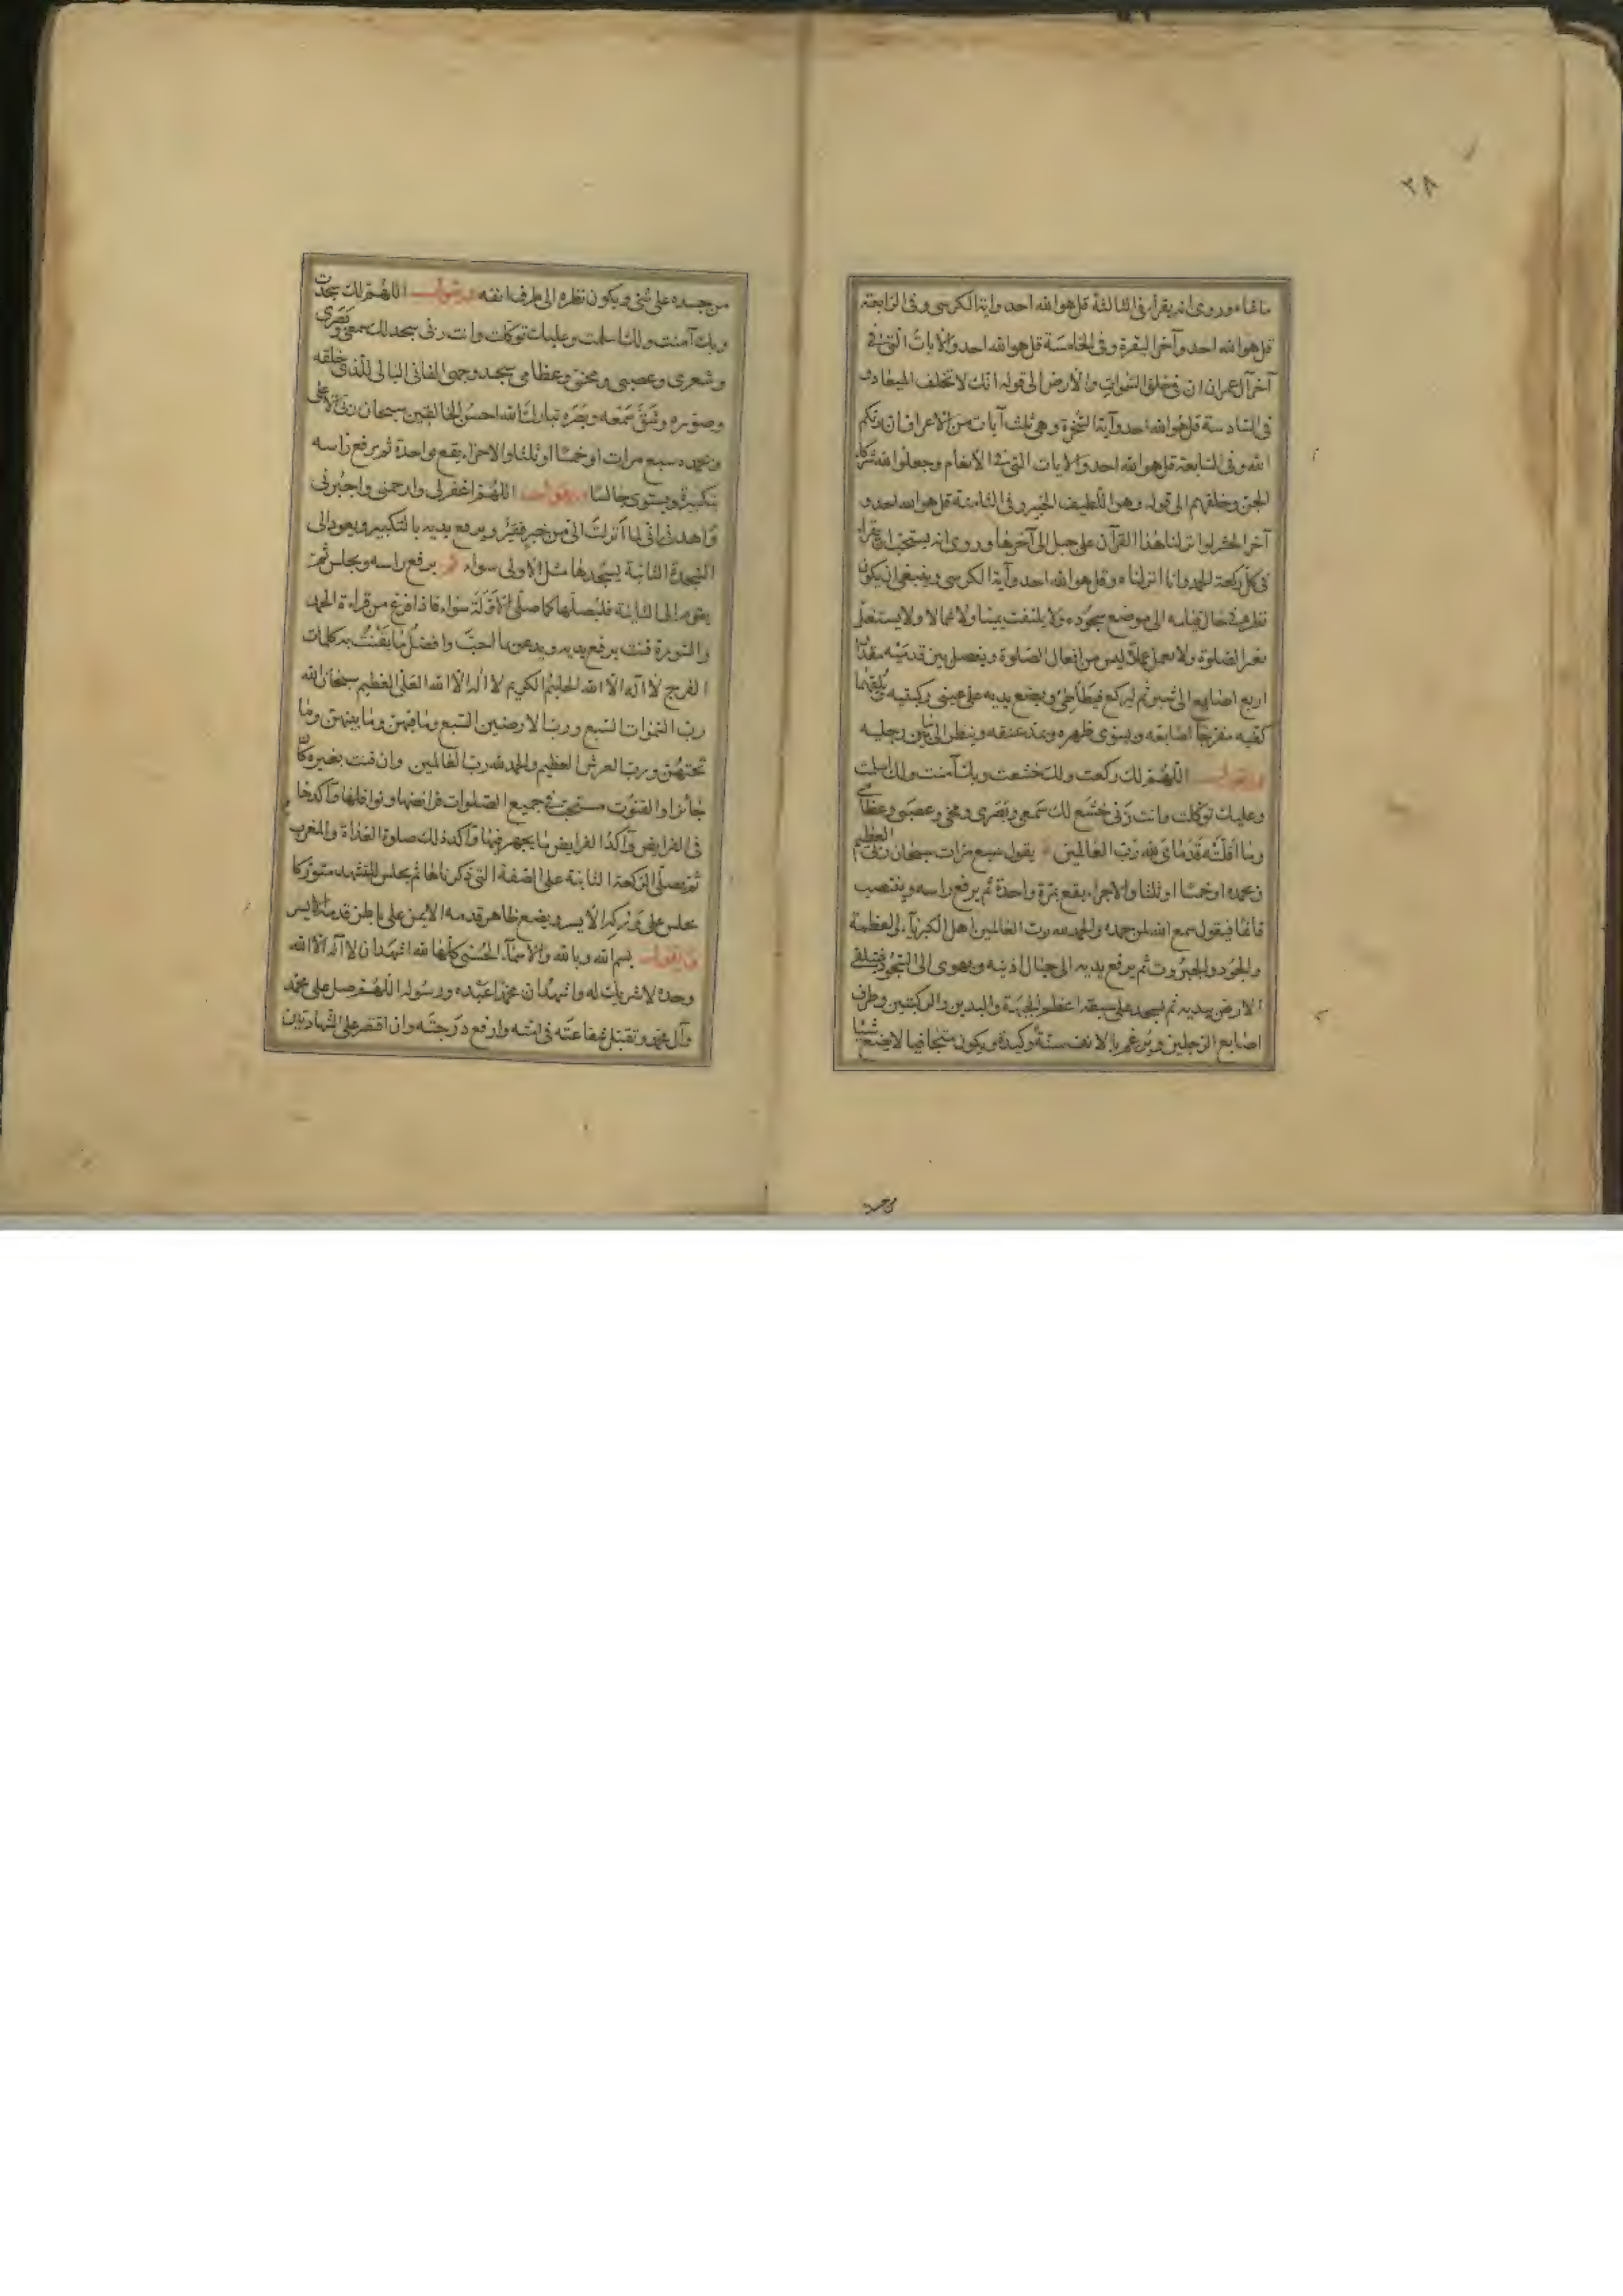 ٢٨
ما شاء وروى انه يقرأ فى الثالثة قل هو الله احد واية الكرسى وفى الرابعة
قل هو الله احد وآخر البقرة وفى الخامسة قل هو الله احد والايات التى فى
آخر آل عمران ان فى خلق السموات والأرض الى قوله انك لا تخلف الميعاد و
فى السادسة قل هو الله احد وآية السخرة وهى ثلث آيات من الاعراف ان ربكم
الله وفى السابعة قل هو الله احد والايات التى فى الأنعام وجعلوا لله شركاء
الجن وخلقهم الى قوله وهو اللطيف الخبير وفى الثامنة قل هو الله احد و
آخر الحشر لو انزلنا هذا القرآن على جبل الى آخرها وروى انه يستحب ان يقرأ
فى كل ركعة الحمد وانا انزلناه وقل هو الله احد وآية الكرسى وينبغى ان يكون
نظره فى حال قيامه الى موضع سجوده ولا يلتفت يمينا ولا شمالا ولا يشتغل
بغير الصلوة ولا يعمل عملا ليس من افعال الصلوة ويفصل بين قدميه مقدار
اربع اصابع الى شبر ثم ليركع فيطأطئ ويضع يديه على عينى ركبتيه يلقمهما
كفيه مفرجا اصابعه ويسوى ظهره ويمد عنقه وينظر الى ما بين رجليه
ويقول اللهم لك ركعت ولك خشعت وبك آمنت ولك اسلمت
وعليك توكلت وانت ربى خشع لك سمعى وبصرى ومخى وعصبى وعظامى
وما اقلته قدماى لله رب العالمين يقول سبع مرات سبحان ربى العظيم
وبحمده او خمسا او ثلثا والاجزاء يقع بمرة واحدة ثم يرفع راسه وينتصب
قائما فيقول سمع الله لمن حمده والحمد لله رب العالمين اهل الكبرياء والعظمة
والجود والجبروت ثم يرفع يديه الى حيال اذنيه ويهوى الى السجود فيتلقى
الارض بيديه ثم يسجد على سبعة اعظم الجبهة واليدين والركبتين وطرف
اصابع الرجلين ويرغم بالانف سنة وكيدة ويكون متجافيا لا يضع شيئا
من جسده
من جسده على شئ ويكون نظره الى طرف انفه ويقول اللهم لك سجدت
وبك آمنت ولك اسلمت وعليك توكلت وانت ربى سجد لك سمعى وبصرى
وشعرى وعصبى ومخى وعظامى سجد وجهى الفانى البالى للذى خلقه
وصوره وشق سمعه وبصره تبارك الله احسن الخالقين سبحان ربى الاعلى
وبحمده سبع مرات او خمسا او ثلثا والاجزاء يقع بواحدة ثم يرفع راسه
بتكبيرة ويستوى جالسا ويقول اللهم اغفر لى وارحمنى واجبرنى
واهدنى انى لما انزلت الى من خير فقير ويرفع يديه بالتكبير ويعود الى
السجدة الثانية يسجدها مثل الاولى سواء ثم يرفع راسه ويجلس ثم
يقوم الى الثانية فليصلها كما صلى الاولة سواء فاذا فرغ من قراءة الحمد
والسورة قنت يرفع يديه ويدعو بما احب وافضل ما يقنت به كلمات
الفرج لا اله الا الله الحليم الكريم لا اله الا الله العلى العظيم سبحان الله
رب السموات السبع ورب الارضين السبع وما فيهن وما بينهن وما
تحتهن ورب العرش العظيم والحمد لله رب العالمين وان قنت بغيره كان
جائزا والقنوت مستحب فى جميع الصلوات فرائضها ونوافلها وآكدها
فى الفرايض وآكد الفرايض ما يجهر فيها وآكد ذلك صلوة الغداة والمغرب
ثم يصلى الركعة الثانية على الصفة التى ذكرناها ثم يجلس للتشهد متوركا
يجلس على وركه الأيسر ويضع ظاهر قدمه الايمن على باطن قدمه الايسر
ويقول بسم الله وبالله والاسماء الحسنى كلها لله اشهد ان لا اله الا الله
وحده لا شريك له واشهد ان محمدا عبده ورسوله اللهم صل على محمد
وآل محمد وتقبل شفاعته فى امته وارفع درجته وان اقتصر على الشهادتين